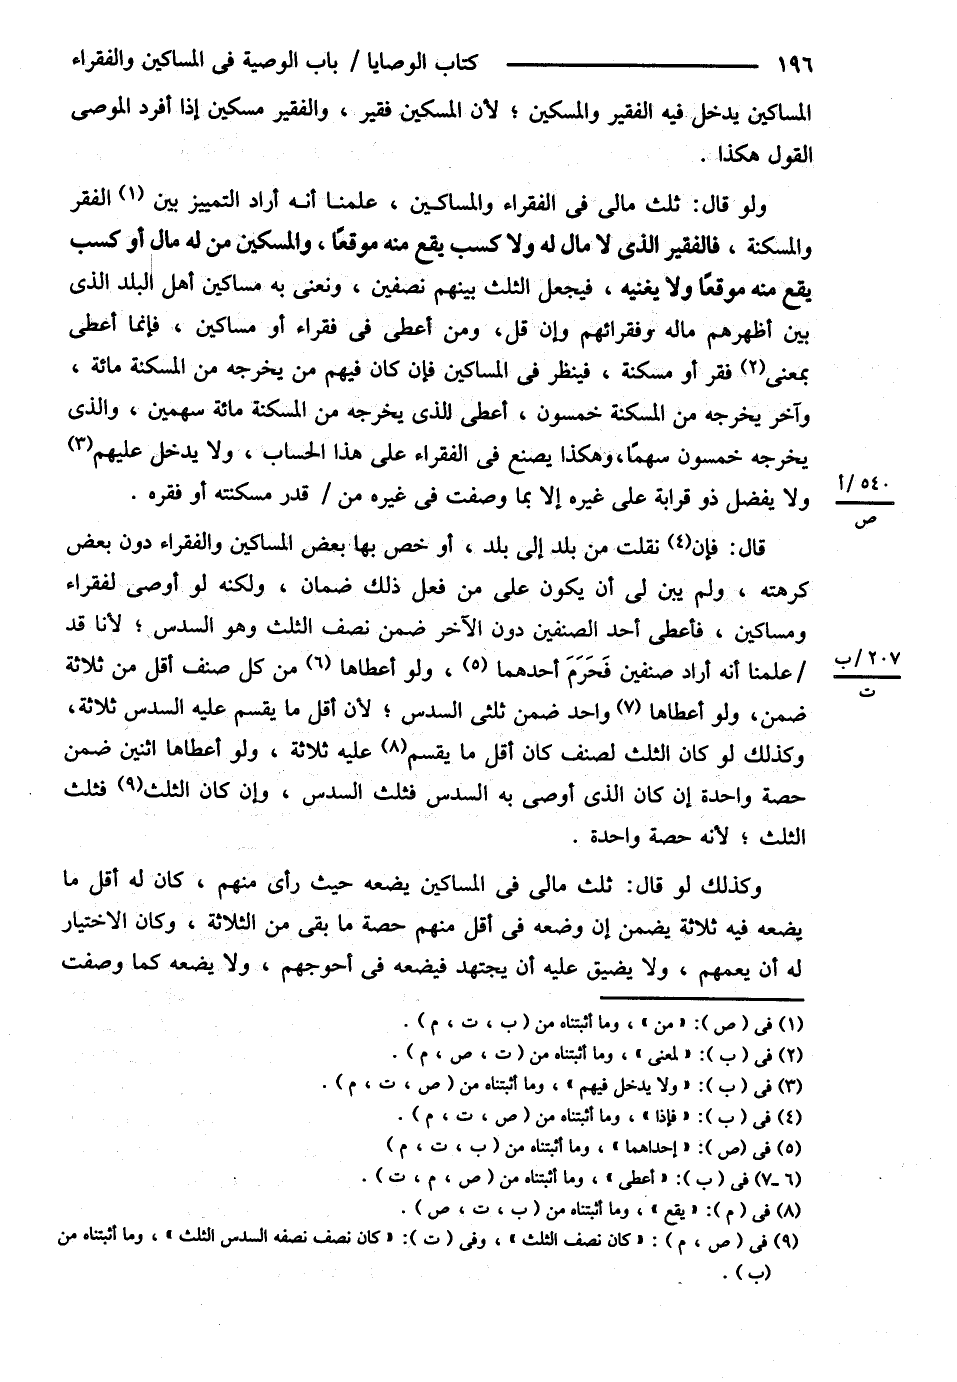 ١٩٦ ــــــــــــــــ كتاب الوصايا / باب الوصية فى المساكين والفقراء
المساكين يدخل فيه الفقير والمسكين ؛ لأن المسكين فقير ، والفقير مسكين إذا أفرد الموصى
القول هكذا .
ولو قال: ثلث مالى فى الفقراء والمساكين ، علمنا أنه أراد التمييز بين (١) الفقر
والمسكنة ، فالفقير الذى لا مال له ولا كسب يقع منه موقعًا ، والمسكين من له مال أو كسب
يقع منه موقعًا ولا يغنيه ، فيجعل الثلث بينهم نصفين ، ونعنى به مساكين أهل البلد الذى
بين أظهرهم ماله وفقرائهم وإن قل، ومن أعطى فى فقراء أو مساكين ، فإنما أعطى
بمعنى(٢) فقر أو مسكنة ، فينظر فى المساكين فإن كان فيهم من يخرجه من المسكنة مائة ،
وآخر يخرجه من المسكنة خمسون ، أعطى للذى يخرجه من المسكنة مائة سهمين ، والذى
يخرجه خمسون سهمًا،وهكذا يصنع فى الفقراء على هذا الحساب ، ولا يدخل عليهم(٣)
ولا يفضل ذو قرابة على غيره إلا بما وصفت فى غيره من / قدر مسكنته أو فقره .
٥٤٠ /أ
ص
قال: فإن(٤) نقلت من بلد إلى بلد ، أو خص بها بعض المساكين والفقراء دون بعض
كرهته ، ولم يبن لى أن يكون على من فعل ذلك ضمان ، ولكنه لو أوصى لفقراء
ومساكين ، فأعطى أحد الصنفين دون الآخر ضمن نصف الثلث وهو السدس ؛ لأنا قد
/ علمنا أنه أراد صنفين فَحَرَمَ أحدهما (٥) ، ولو أعطاها (٦) من كل صنف أقل من ثلاثة
٢٠٧ /ب
ت
ضمن، ولو أعطاها (٧) واحد ضمن ثلثى السدس ؛ لأن أقل ما يقسم عليه السدس ثلاثة،
وكذلك لو كان الثلث لصنف كان أقل ما يقسم(٨) عليه ثلاثة ، ولو أعطاها اثنين ضمن
حصة واحدة إن كان الذى أوصى به السدس فثلث السدس ، وإن كان الثلث(٩) فثلث
الثلث ؛ لأنه حصة واحدة .
وكذلك لو قال: ثلث مالى فى المساكين يضعه حيث رأى منهم ، كان له أقل ما
يضعه فيه ثلاثة يضمن إن وضعه فى أقل منهم حصة ما بقى من الثلاثة ، وكان الاختيار
له أن يعمهم ، ولا يضيق عليه أن يجتهد فيضعه فى أحوجهم ، ولا يضعه كما وصفت
(١) فى ( ص ): « من » ، وما أثبتناه من ( ب ، ت ، م ) .
(٢) فى ( ب ): « لمعنى » ، وما أثبتناه من ( ت ، ص ، م ) .
(٣) فى ( ب ): « ولا يدخل فيهم » ، وما أثبتناه من ( ص ، ت ، م ) .
(٤) فى ( ب ): « فإذا » ، وما أثبتناه من ( ص ، ت ، م ) .
(٥) فى (ص ): « إحداهما » ، وما أثبتناه من ( ب ، ت ، م )
(٦ ـ٧) فى ( ب ): « أعطى » ، وما أثبتناه من ( ص ، م ، ت ) .
(٨) فى ( م ): « يقع » ، وما أثبتناه من ( ب ، ت ، ص ) .
(٩) فى ( ص ، م ) : « كان نصف الثلث » ، وفى ( ت ): « كان نصف نصفه السدس الثلث » ، وما أثبتناه من
(ب ) .